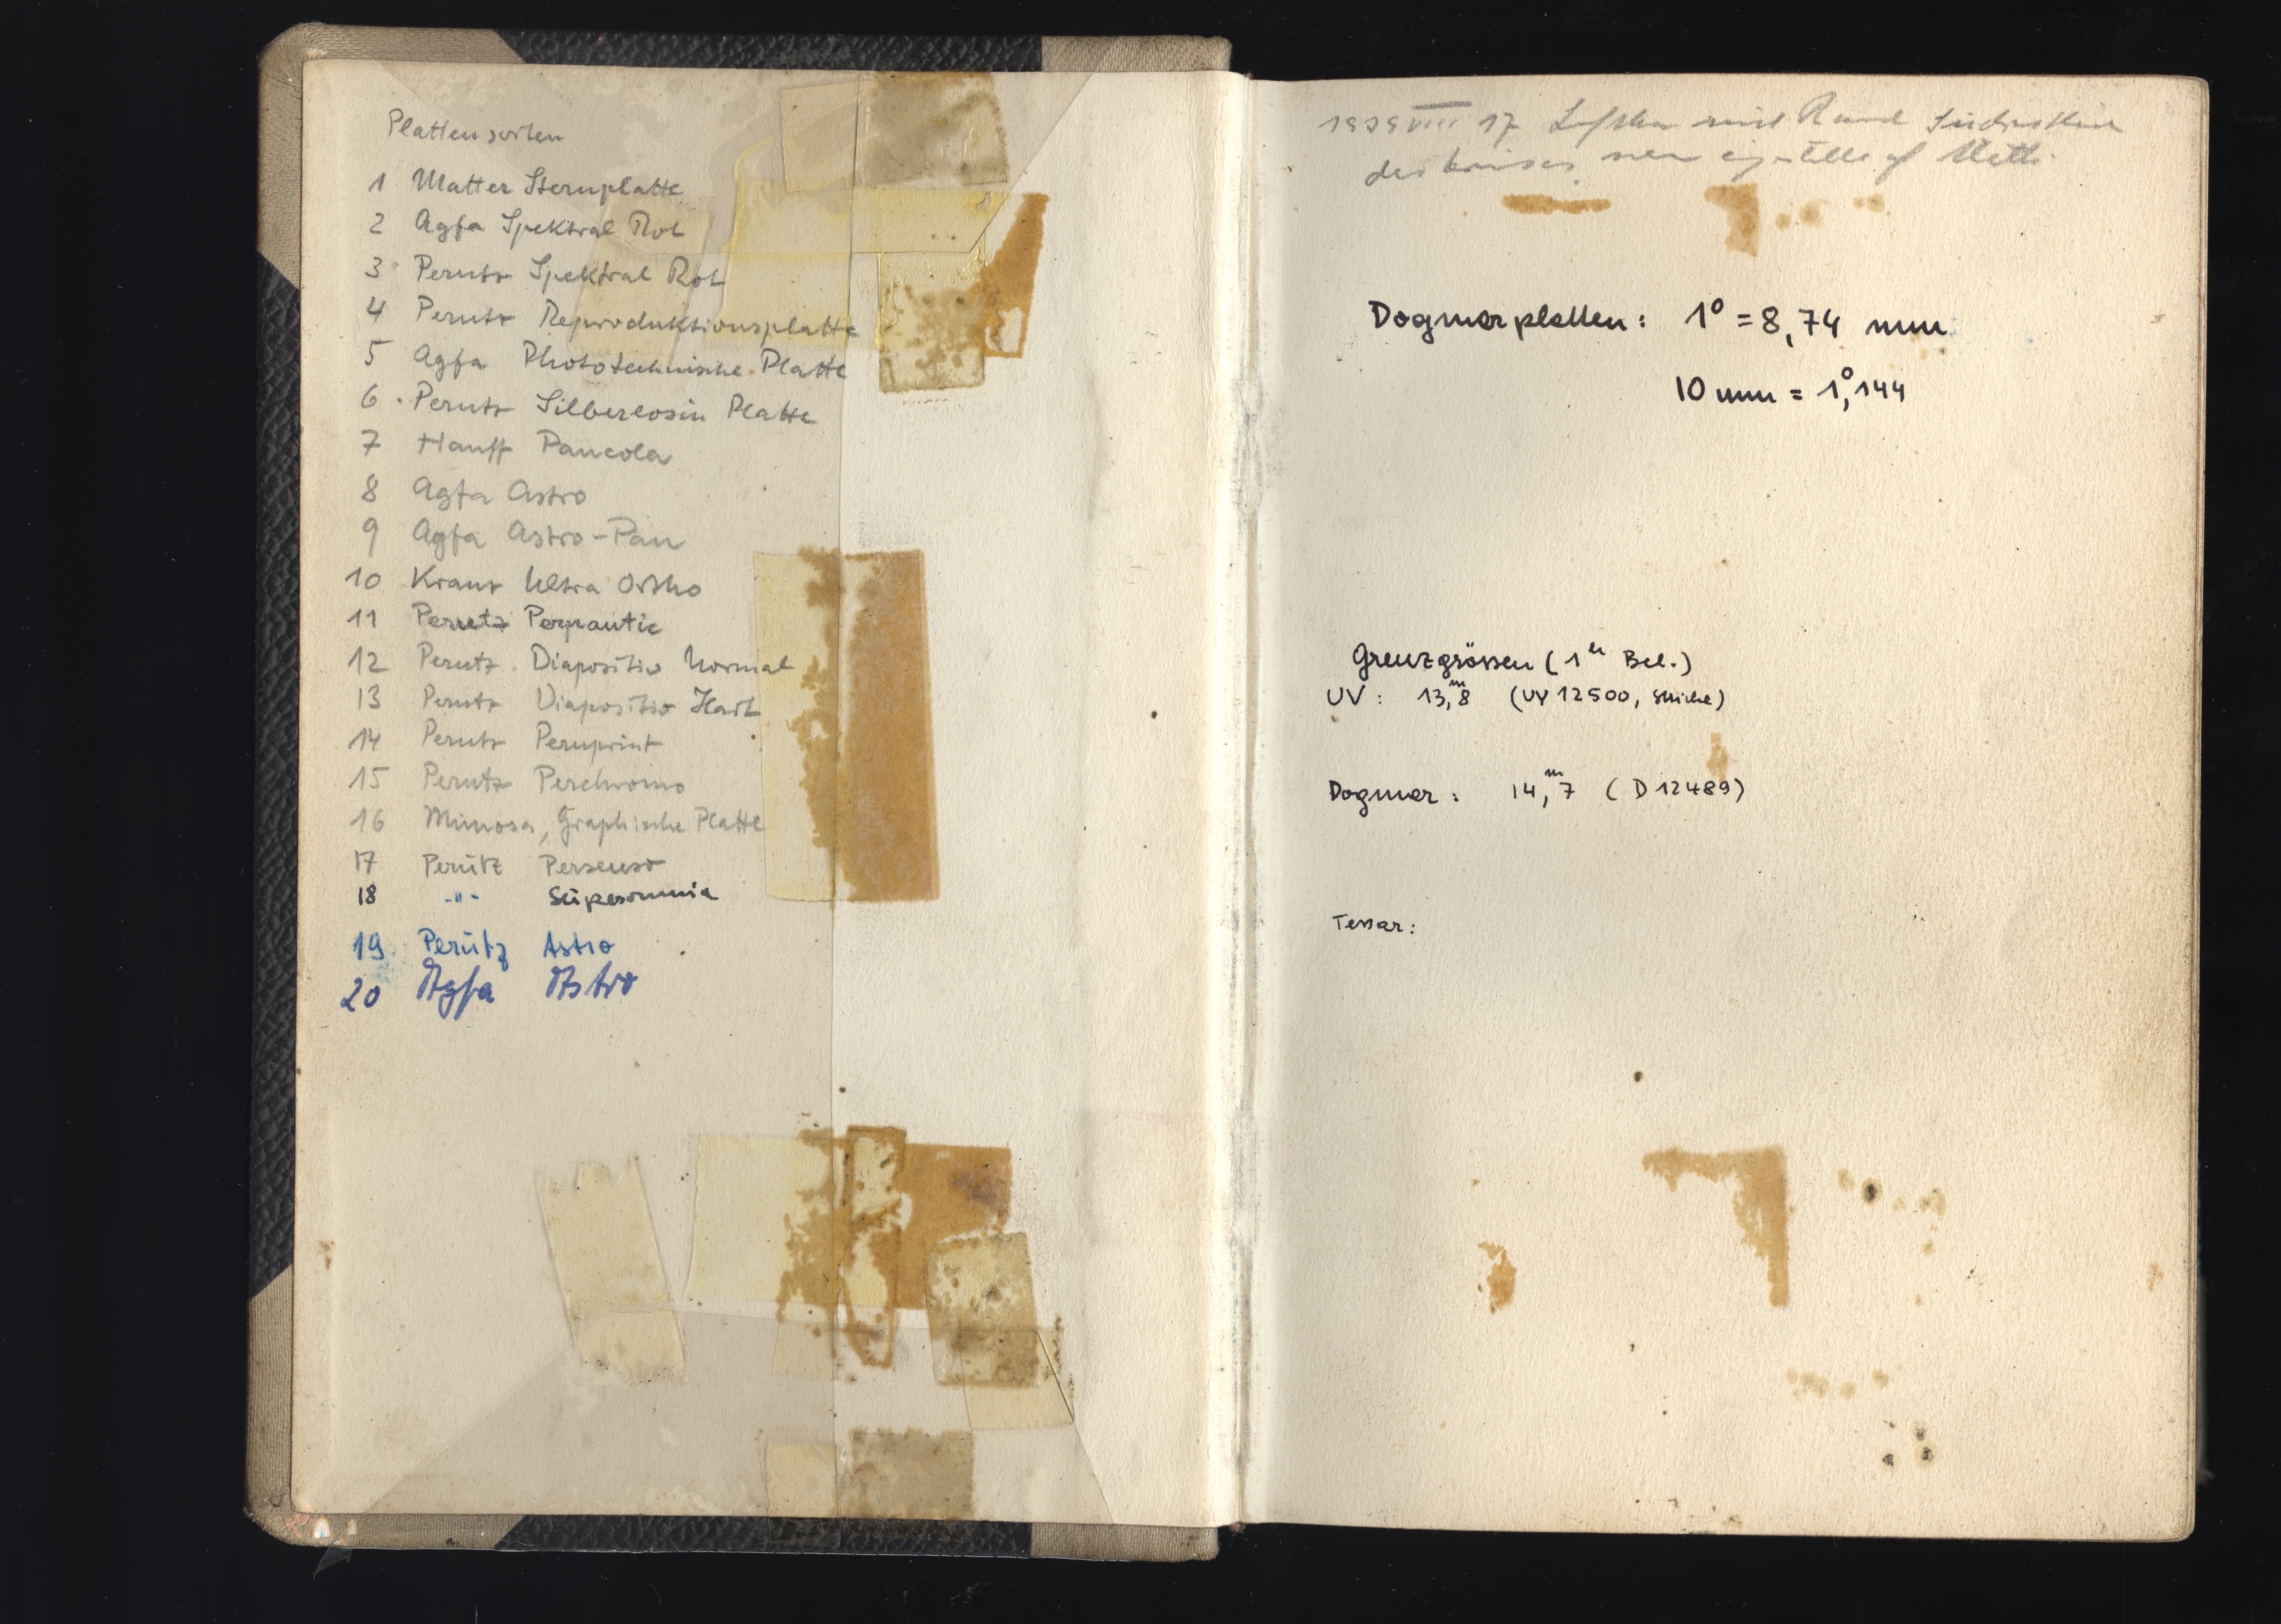 Plattensorten
1 Matter Sternplatte
2 Agfa Spektral Rot
3 Perutz Spektral Rot
4 Perutz Reproduktionsplatte
5 Agfa Phototechnische Platte
6 Perutz Silbereosin Platte
7 Hauff Pancola
8 Agfa Astro
9 Agfa Astro-Pan
10 Kranz Ultra Ortho
11 Perutz
12 Perutz Diapositiv Normal
13 Perutz Diapositiv Hart
14 Perutz Peruprint
15 Perutz Perchromo
16 Mimosa, Graphische Platte
17 Perutz Persenso
18 -"- Superomnia
19 Perütz Astro
20 Agfa Astro
17 mit
des neu
Dogmarplatten: 1° = 8,74 mm
10 mm = 1°,144
Grenzgrössen (1h Bel.)
UV: 13,m8 (UV 12500,
Dogmar: 14,m7 (D 12489)
Tessar: